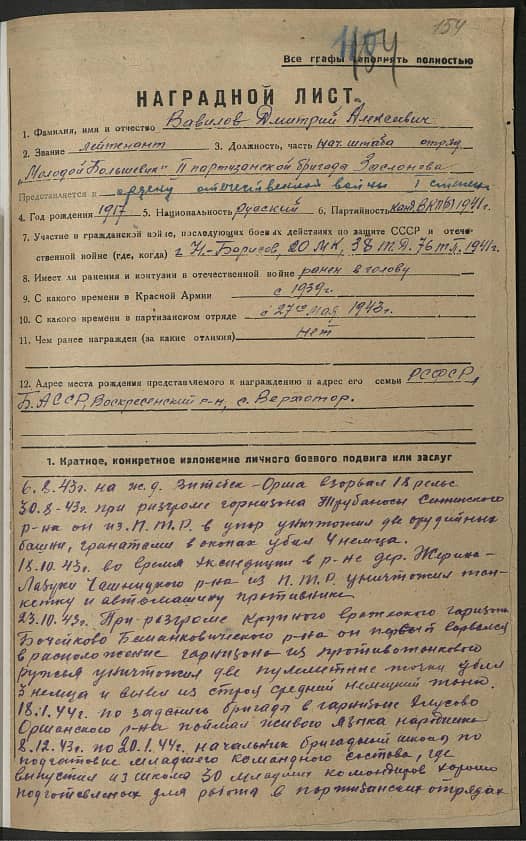 154
1154
Все графы заполнять полностью
НАГРАДНОЙ ЛИСТ.
1. Фамилия, имя и отчество Вавилов Дмитрий Алексеевич
2. Звание лейтенант 3. Должность, часть нач. штаба отряд
"Молодой Большевик" II партизанской бригада Заслонова
Представляется к ордену отечественной войны I степени
4. Год рождения 1917 5. Национальность Русский 6. Партийность канд. ВКП(б) 1941 г.
7. Участие в гражданской войне, последующих боевых действиях по защите СССР и отече-
ственной войне (где, когда) г. Н-Борисов, 20 МК, 38 т.д. 76 т.п. 1941г.
8. Имеет ли ранения и контузии в отечественной войне ранен в голову
9. С какого времени в Красной Армии с 1939г.
10. С какого времени в партизанском отряде с 27го мая 1943г.
11. Чем ранее награжден (за какие отличия) нет
12. Адрес места рождения представляемого к награждению и адрес его семьи РСФСР,
Б.АССР, Воскресенский р-н, с. Верхотор.
1. Краткое, конкретное изложение личного боевого подвига или заслуг
6.8.43г. на ж.д. Витебск-Орша взорвал 18 рельс
30.8-43г. при разгроме гарнизона Трубаносы Синнского
р-на он из П.Т.Р. в упор уничтожил две орудийных
башни, гранатами в окопах убил 4 немца.
18.10.43г. во время экспедиции в р-не дер. Жерики-
Лазуки Чашницкого р-на из П.Т.Р. уничтожил тан-
кетку и автомашину противника
23.10.43г. При разгроме крупного вражеского гарнизона
Бочейково Бешанковического р-на он первым ворвался
в расположение гарнизона из противотанкового
ружья уничтожил две пулеметные точки убил
3 немца и вывел из строя средний немецкий танк.
18.1.44г. по заданию бригады в гарнизоне
Оршанского р-на поймал живого языка
8.12.43г. по 20.1.44г. начальник бригадной школы по
подготовке младшего командного состава, где
выпустил из школы 30 младших командиров хорошо
подготовленых для работы в партизанских отрядах